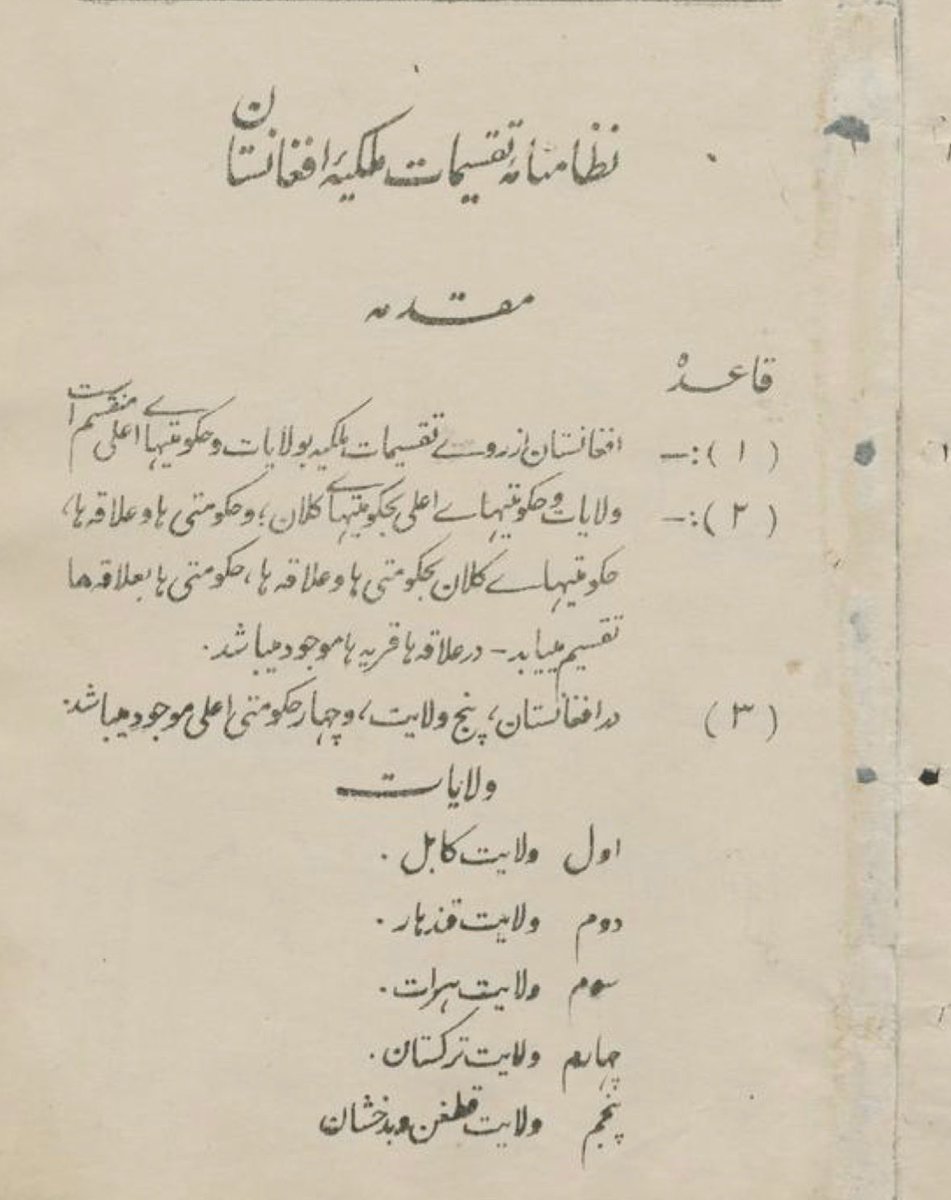 نظامنامهٔ تقسیمات ملکیهٔ افغانستان
مقدمه
قاعدهٔ
(۱):— افغانستان از روے تقسیمات ملکیه بولایات و حکومتیهاے اعلی منقسم است
(۲):— ولایات و حکومتیهاے اعلی بحکومتیهاے کلان؛ و حکومتی ها و علاقه ها،
حکومتیهاے کلان بحکومتی ها و علاقه ها، حکومتی ها بعلاقه ها
تقسیم مییابد – در علاقه ها قریه ها موجود میباشد.
(۳) در افغانستان، پنج ولایت، و چهار حکومتی اعلی موجود میباشد.
ولایات
اول ولایت کابل.
دوم ولایت قندهار.
سوم ولایت هرات.
چهارم ولایت ترکستان.
پنجم ولایت قطغن و بدخشان